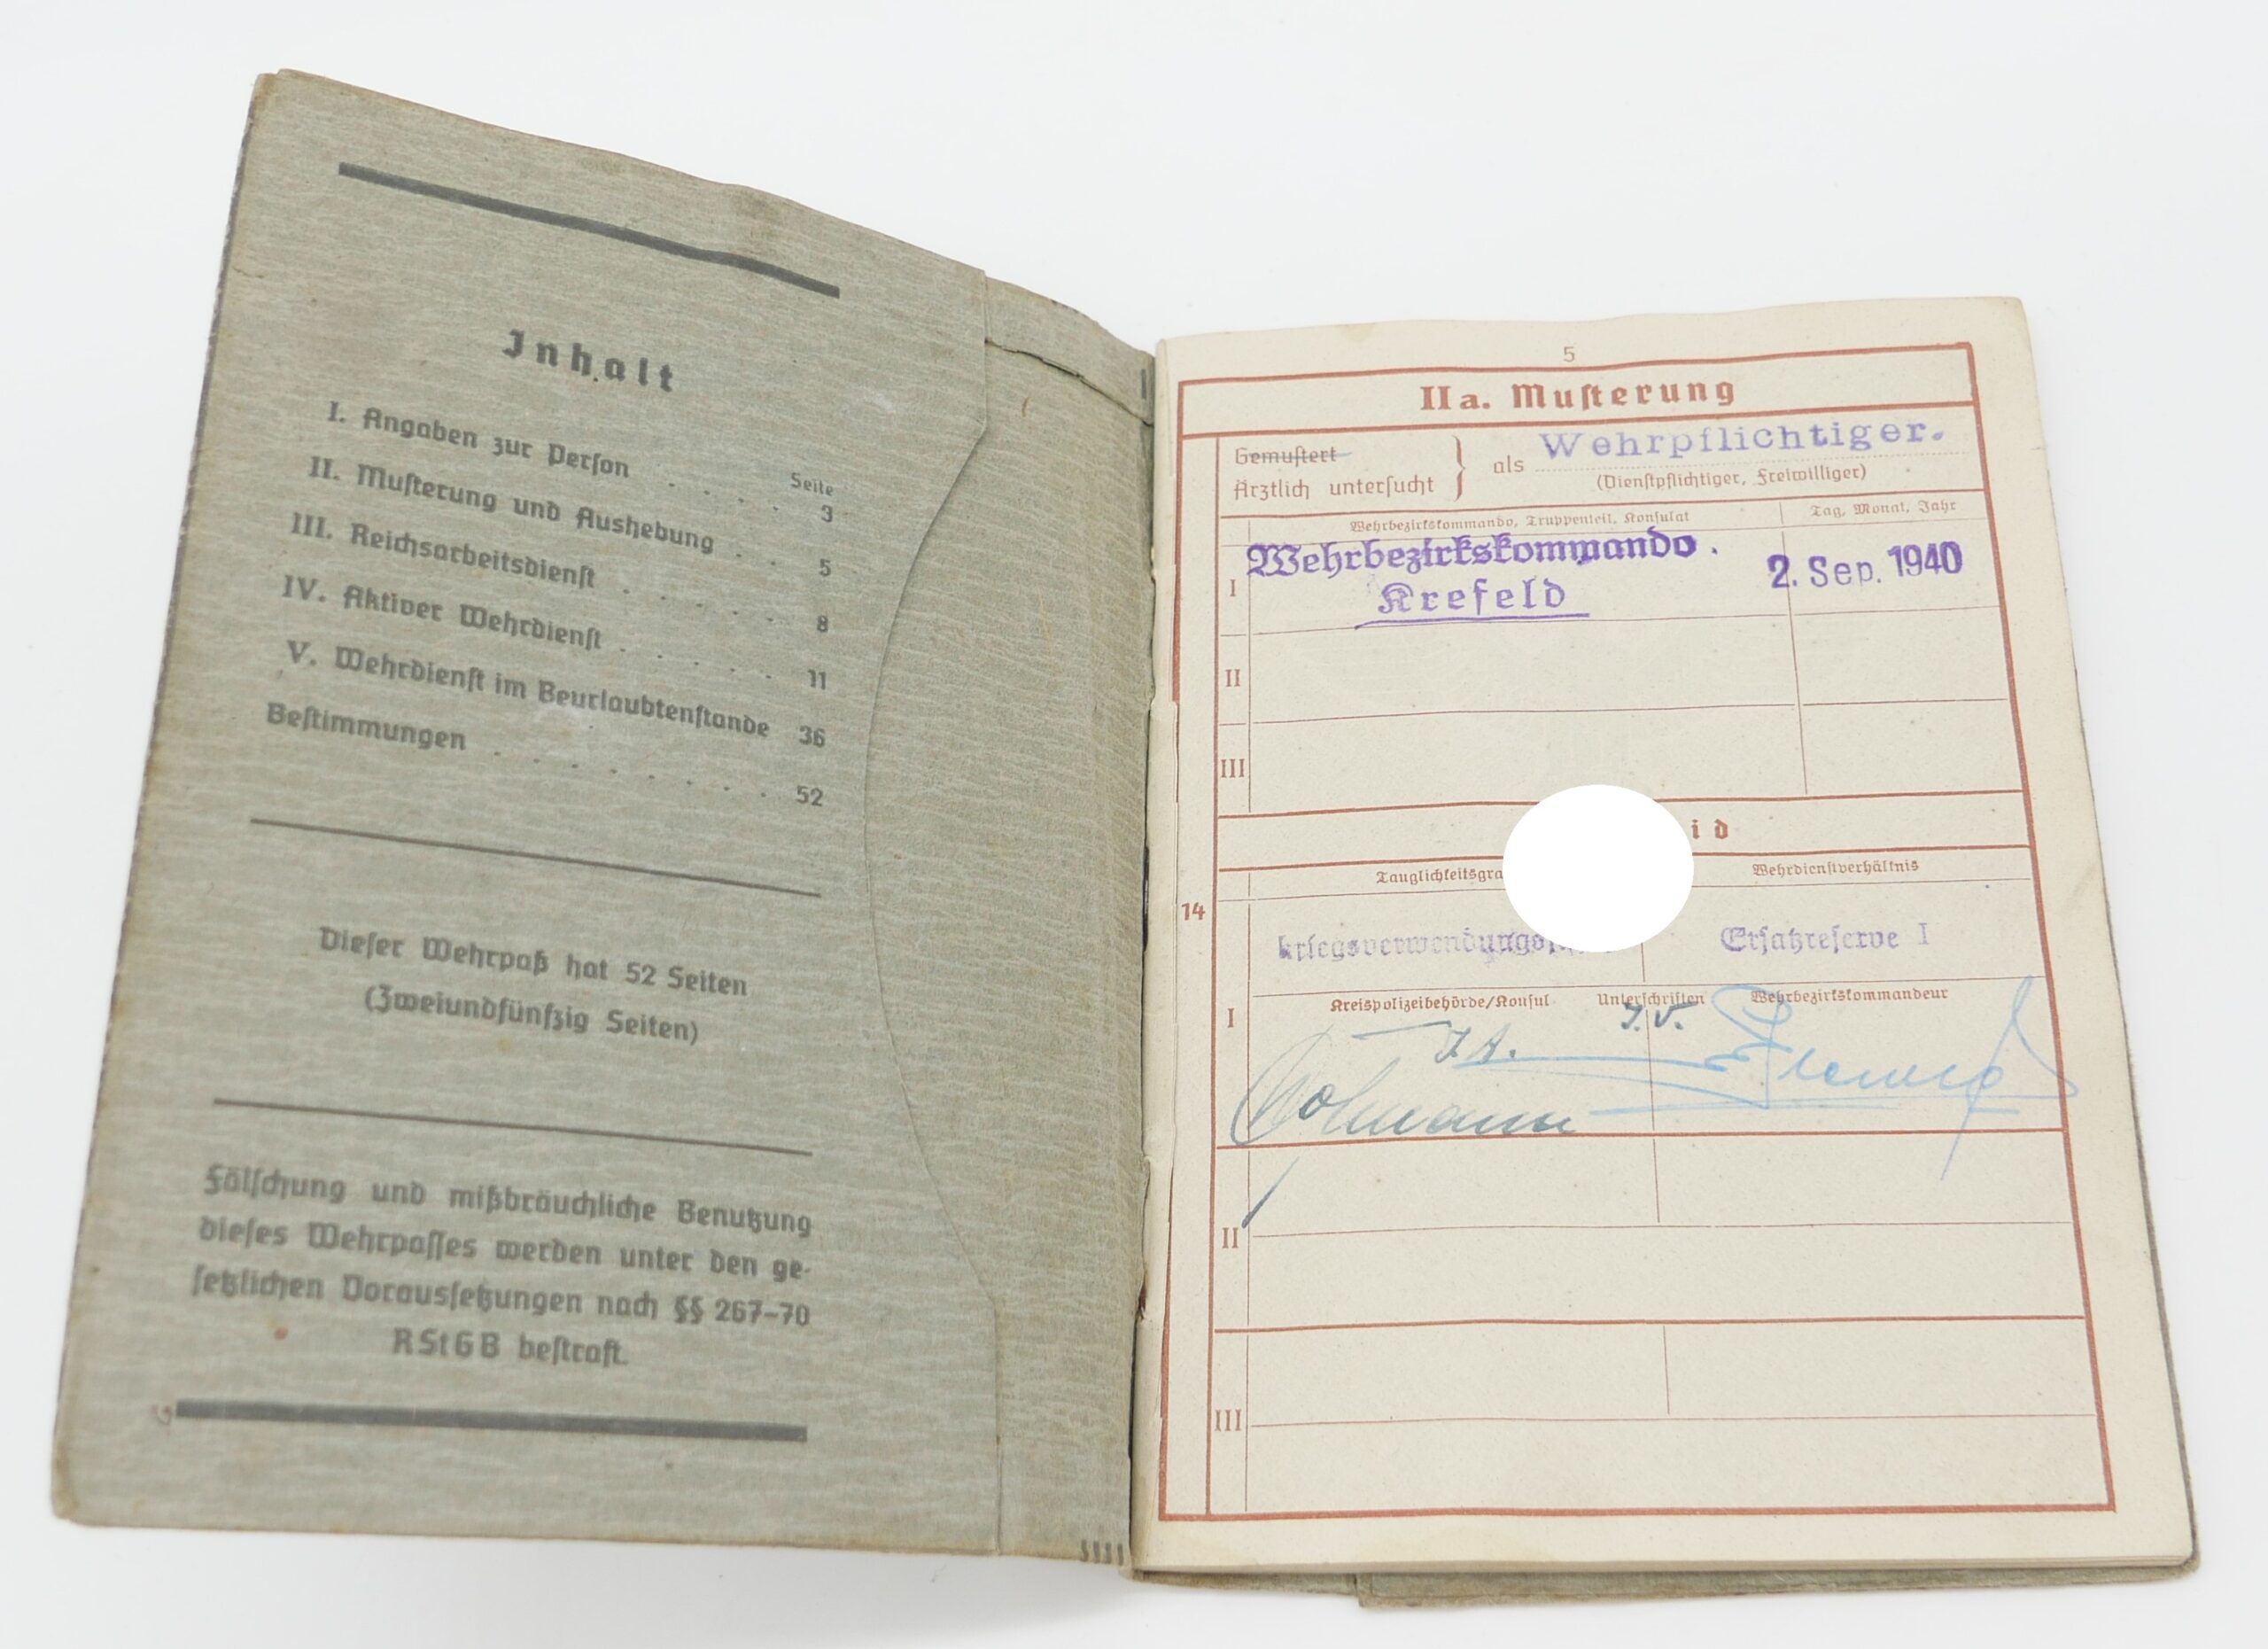 Inhalt
Seite
I. Angaben zur Person . . . . 3
II. Musterung und Aushebung . . 5
III. Reichsarbeitsdienst . . . . . 8
IV. Aktiver Wehrdienst . . . . . 11
V. Wehrdienst im Beurlaubtenstande 36
Bestimmungen . . . . . . . . 52
Dieser Wehrpaß hat 52 Seiten
(Zweiundfünfzig Seiten)
Fälschung und mißbräuchliche Benutzung
dieses Wehrpasses werden unter den ge-
setzlichen Voraussetzungen nach §§ 267–70
RStGB bestraft.
5
IIa. Musterung
Gemustert
Ärztlich untersucht } als Wehrpflichtiger.
(Dienstpflichtiger, Freiwilliger)
Wehrbezirkskommando, Truppenteil, Konsulat
Tag, Monat, Jahr
I Wehrbezirkskommando. 2. Sep. 1940
Krefeld
II
III
id
Wehrdienstverhältnis
14
Ersatzreserve I
I
Kreispolizeibehörde/Konsul Unterschriften Wehrbezirkskommandeur
I.A. I.V.
II
III